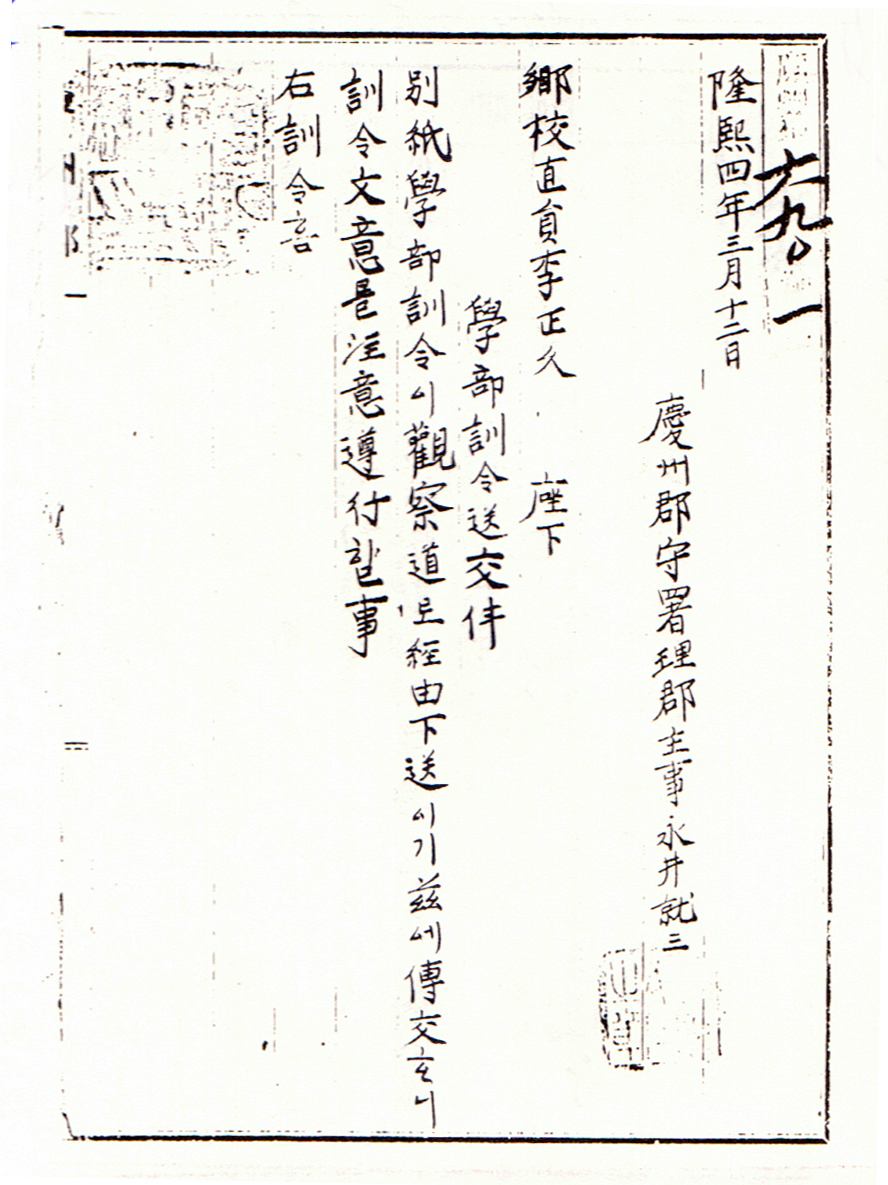 六九〇一
隆熙四年三月十二日
慶州郡守署理郡主事永井就三
鄕校直員李正久 座下
學部訓令送交件
別紙學部訓令이觀察道로經由下送이기玆에傳交하니
訓令文意를注意遵行할事
右訓令홈